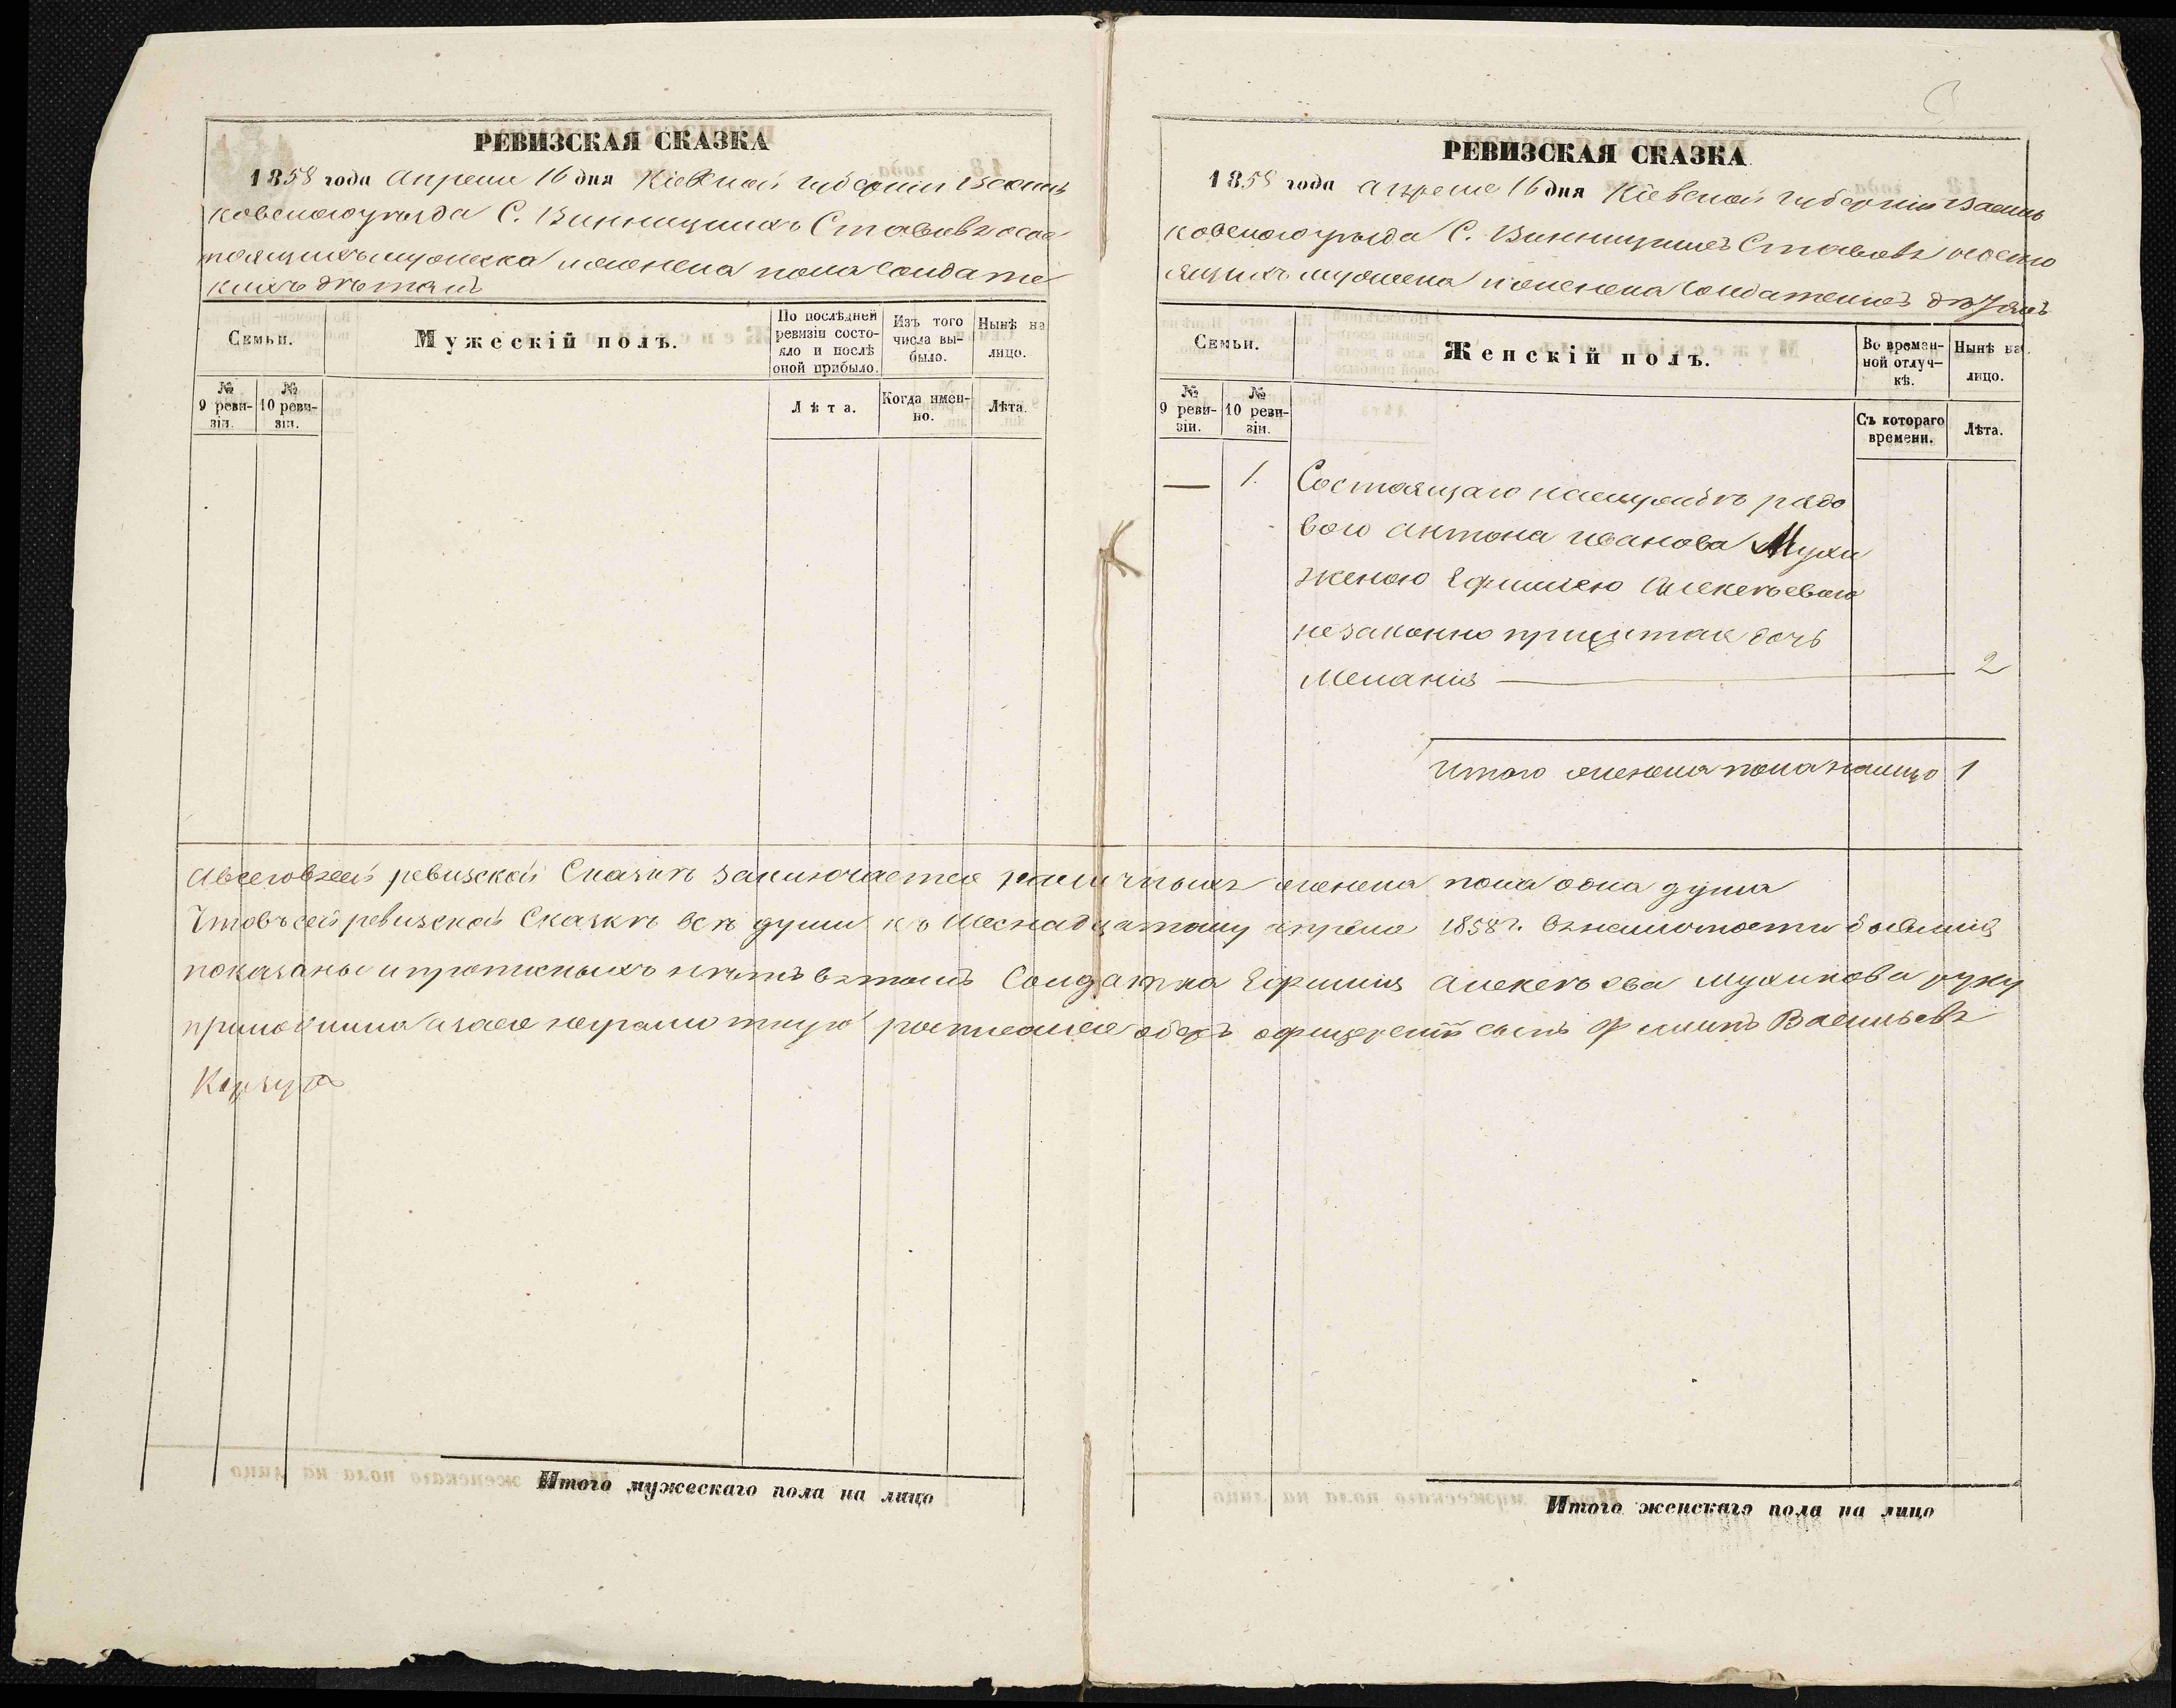 РЕВИЗСКАЯ СКАЗКА
1858 года Апреля 16 дня Кіевской губерніи Василь
ковскогоуѣзда С. Винницкихъ Ставовъ осос
тоящихъмужеска иженска пола Солдатс
кихъ дѣтяхъ
Семьи.
Мужескій полъ.
По послѣдней
ревизіи состо-
яло и послѣ
оной прибыло.
Изъ того
числа вы-
было.
Нынѣ на
лицо.
№
9 реви-
зіи.
№
10 реви-
зіи.
Лѣта.
Когда имен-
но.
Лѣта.
РЕВИЗСКАЯ СКАЗКА
1858 года апреля 16 дня Кіевской губерніи Василь
ковскогоуѣзда С. Винницкихъ Ставовъ осостo
ящихъ мужеска иженска Солдатскихъ дѣтяхъ
Семьи.
Женскій полъ.
Во времен-
ной отлуч-
кѣ.
Нынѣ на
лицо.
№
9 реви-
зіи.
№
10 реви-
зіи.
Съ котораго
времени.
Лѣта.
— 1. Состоящаго наслужбѣ рядо
вого Антона Иванова Мухи
женою Ефиміею Алексѣевою
незаконно прижитая дочь
Меланія — 2
Итого женска пола налицо 1
Авсеговъсей ревизской Сказкѣ заключается наличныхъ женска пола одна душа
Чтовъсей ревизской Сказкѣ всѣ души къ Шеснадцатому апреля 1858 г. вналичности бывшія
показаны ипрописныхъ нѣтъ втомъ Солдатка Ефимія Алексѣева Мухинова руку
приложила азаее неграмотную росписался оберъ офицерскій сынъ Филипъ Васильевъ
Итого мужескаго пола на лицо
Итого женскаго пола на лицо